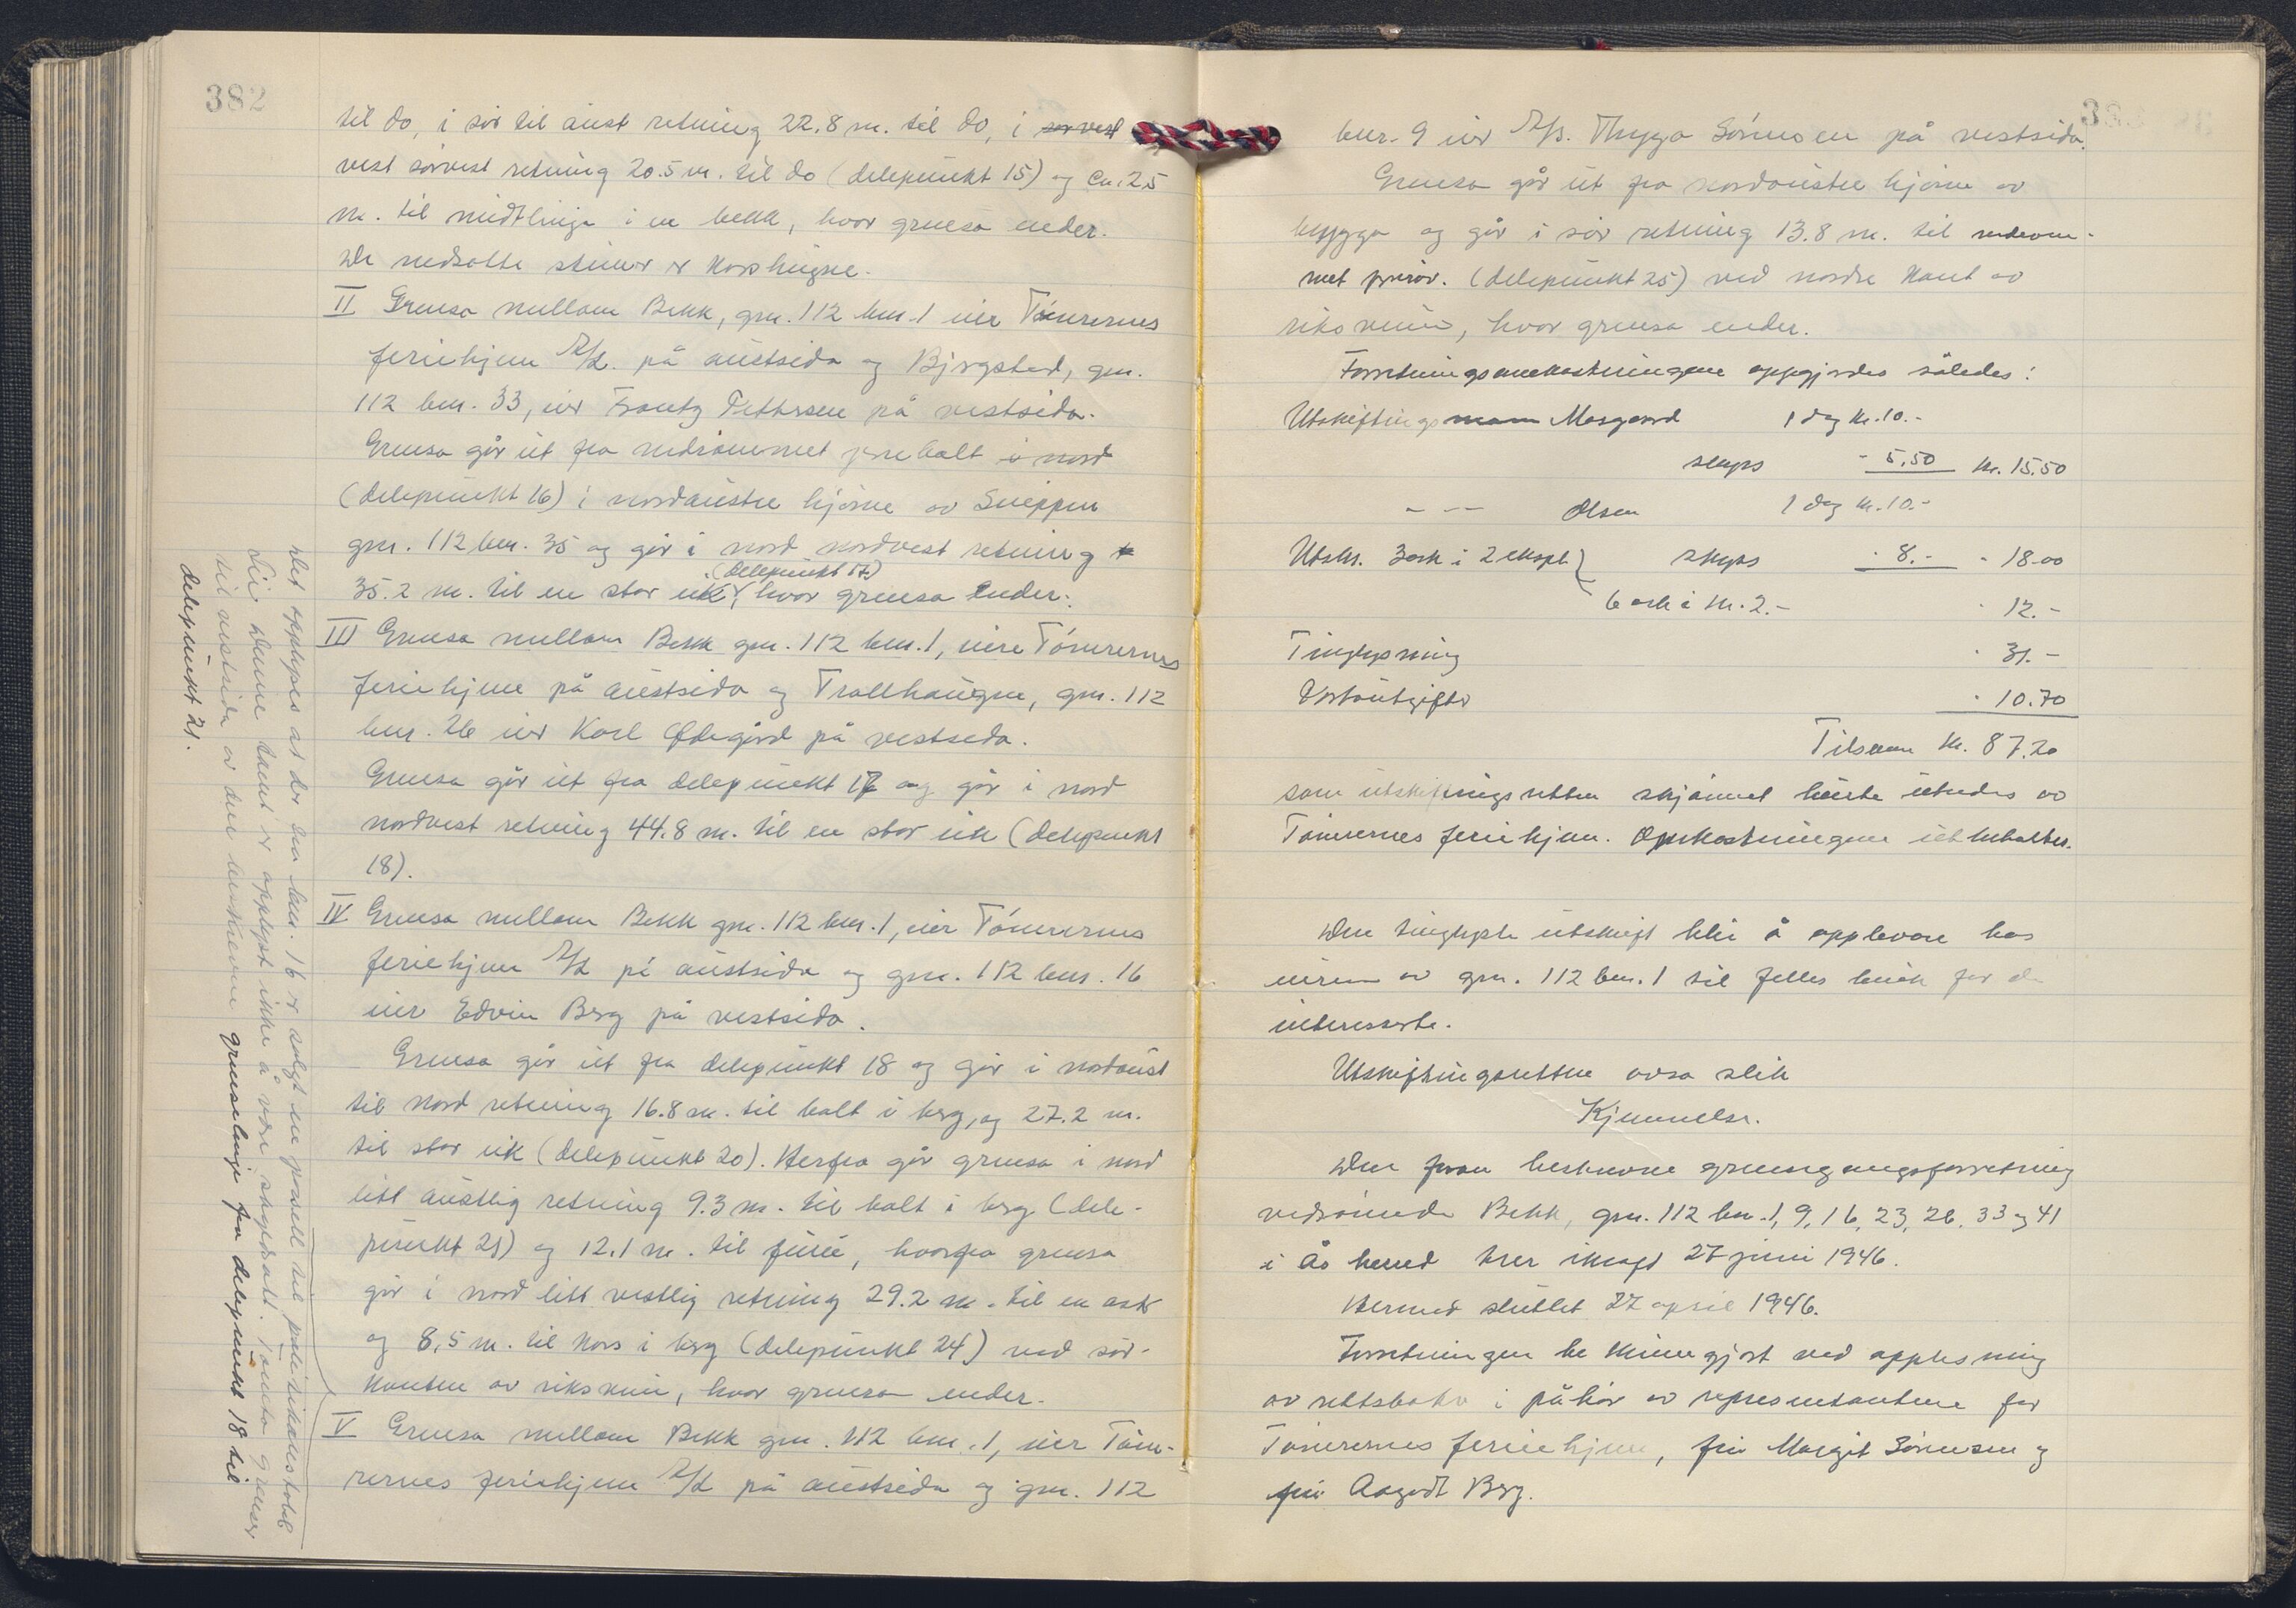 382
til do, i sør til aust retning 22.8 m. til do, i sørvest
vest sørvest retning 20.5 m. til do (delepunkt 15) og ca. 2,5
m. til midtlinje i en bekk, hvor grensa ender.
De nedsatte steiner er korshugne.
II Grensa mellom Bekk, gnr. 112 bnr. 1 eier Tømrernes
feriehjem A/L. på austsida og Bjergsted, gnr.
112 bnr. 33, eier Frantz Pettersen på vestsida.
Grensa går ut fra nedrammet jernbolt i nord
(delepunkt 16) i nordaustre hjørne av Sneppen
gnr. 112 bnr. 35 og går i nord nordvest retning
(delepunkt 17)
35.2 m. til en stor eik, hvor grensa ender.
III Grensa mellom Bekk gnr. 112 bnr. 1, eiere Tømrernes
feriehjem på austsida og Trollhaugen, gnr. 112
bnr. 26 eier Karl Ødegård på vestsida.
Grensa går ut fra delepunkt 17 og går i nord
nordvest retning 44.8 m. til en stor eik (delepunkt
18).
IV Grensa mellom Bekk gnr. 112 bnr. 1, eier Tømrernes
feriehjem A/L på austsida og gnr. 112 bnr. 16
eier Edvin Berg på vestsida.
Grensa går ut fra delepunkt 18 og går i nordaust
til nord retning 16.8 m. til bolt i berg, og 27.2 m.
til stor eik (delepunkt 20). Herfra går grensa i nord
litt austlig retning 9.3 m. til bolt i berg (dele-
punkt 21) og 12.1 m. til furu, hvorfra grensa
går i nord litt vestlig retning 29.2 m. til en ask
og 8,5 m. til kors i berg (delepunkt 24) ved sør-
kanten av riksveien, hvor grensen ender.
V Grensa mellom Bekk gnr. 112 bnr. 1, eier Tøm-
rernes feriehjem A/L på austsida og gnr. 112
Det opplyses at der fra bnr. 16 er solgt en parsell til
Lie. Denne tomt er opplyst ikke å være skyldsatt. Tomta grenser
til vestsida av den beskrevne grenselinje fra delepunkt 18 til
delepunkt 21.
bnr. 9 eier Thygo Sørensen på vestsida.
Grensa går ut fra nordaustre hjørne av
brygga og går i sør retning 13.8 m. til nedram-
met jernrør. (delepunkt 25) ved nordre kant av
riksveien, hvor grensa ender.
Forretningsomkostningene oppgjordes således:
Utskiftingsmann Mosgaard 1 dag kr. 10.-
skyss - 5.50 kr. 15.50
- -- Olsen 1 dag kr. 10.-
Utskr. 3 ark i 2 ekspl. } skyss - 8.- - 18.00
6 ark à kr. 2.- - 12.-
Tinglysning - 31.-
Portoutgifter - 10.70
Tilsammen kr. 87.20
som utskiftingsretten skjønnet burte utredes av
Tømrernes feriehjem. Omkostningene
Den tinglyste utskrift blir å oppbevare hos
eieren av gnr. 112 bnr. 1 til felles bruk for de
interesserte.
Utskiftingsretten avsa slik
Kjennelse.
Den foran beskrevne grensegangsforretning
vedrørende Bekk, gnr. 112 bnr. 1, 9, 16, 23, 26, 33 og 41
i Ås herred trer i kraft 27 juni 1946.
Hermed sluttet 27 april 1946.
Forretningen bekjennegjort ved opplesning
av rettsboka i påhør av representantene for
Tømrernes feriehjem, fru Margit Sørensen og
fru Aagodt Berg.